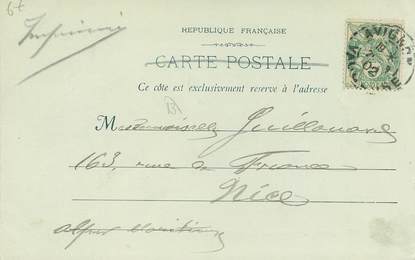 6f
Imprimé
REPUBLIQUE FRANÇAISE
CARTE POSTALE
Ce côte est exclusivement reservé à l'adresse
AVIGNON
VAUCLUSE
02
Mademoiselle Guillouard
163, rue de France
Nice